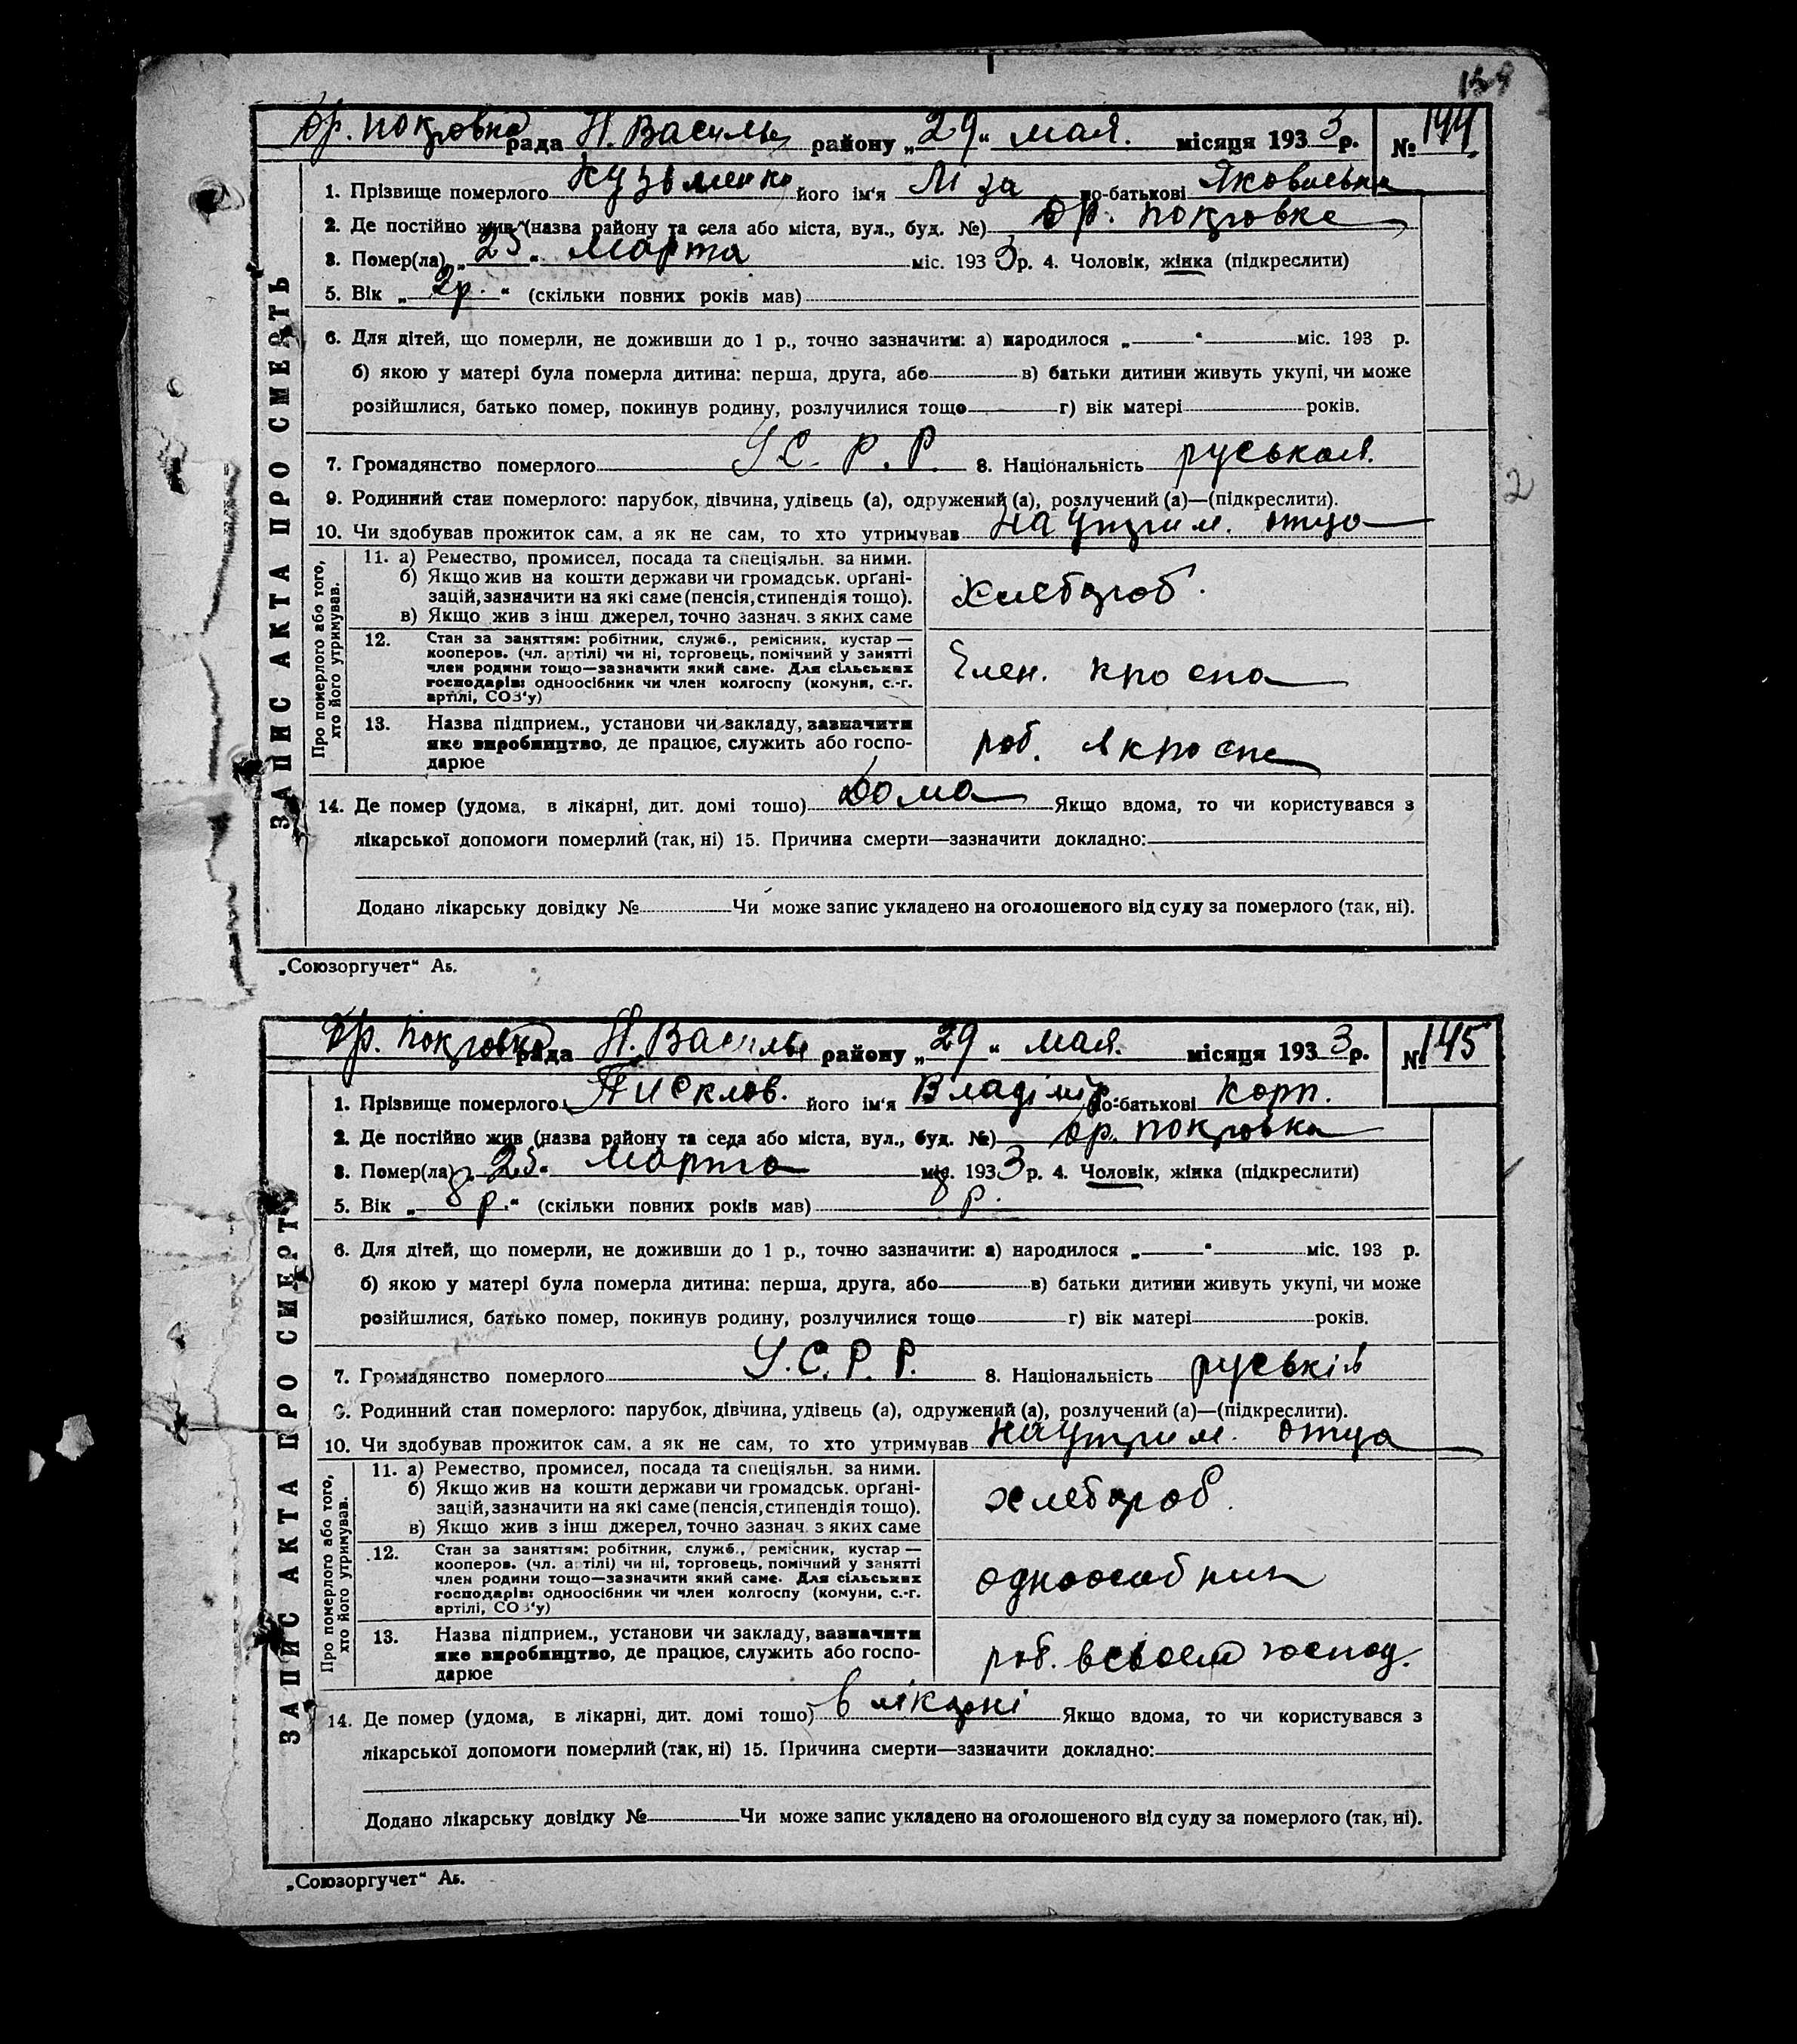 Др. Покровка рада Н. Василь району „29“ мая. місяця 1933 р. № 144
1. Прізвище померлого Кузьменко його ім'я Ліза по-батькові Яковлевна
2. Де постійно жив (назва району та села або міста, вул., буд. №) Др. Покровке
3. Помер(ла) „25“ марта міс. 1933 р. 4. Чоловік, жінка (підкреслити)
5. Вік „2р.“ (скільки повних років мав)
6. Для дітей, що померли, не доживши до 1 р., точно зазначити: а) народилося „ “ міс. 193 р.
б) якою у матері була померла дитина: перша, друга, або в) батьки дитини живуть укупі, чи може
розійшлися, батько помер, покинув родину, розлучилися тощо г) вік матері років.
7. Громадянство померлого У.С.Р.Р. 8. Національність руськая.
9. Родинний стан померлого: парубок, дівчина, удівець (а), одружений (а), розлучений (а)—(підкреслити).
10. Чи здобував прожиток сам, а як не сам, то хто утримував на утрим. отца
ЗАПИС АКТА ПРО СМЕРТЬ
Про померлого або того, хто його утримував.
11. а) Ремество, промисел, посада та спеціяльн. за ними.
б) Якщо жив на кошти держави чи громадськ. органі-
зацій, зазначити на які саме (пенсія, стипендія тощо).
в) Якщо жив з інш джерел, точно зазнач. з яких саме
хлебороб.
12. Стан за заняттям: робітник, служб., ремісник, кустар —
кооперов. (чл. артілі) чи ні, торговець, помічний у занятті
член родини тощо—зазначити який саме. Для сільських
господарів: одноосібник чи член колгоспу (комуни, с.-г.
артілі, СОЗ'у)
член.
13. Назва підприєм., установи чи закладу, зазначити
яке виробництво, де працює, служить або госпо-
дарює
роб.
14. Де помер (удома, в лікарні, дит. домі тощо) дома Якщо вдома, то чи користувався з
лікарської допомоги померлий (так, ні) 15. Причина смерти—зазначити докладно:
Додано лікарську довідку № Чи може запис укладено на оголошеного від суду за померлого (так, ні).
„Союзоргучет“ А5.
2
Др. Покровка рада Н. Василь району „29“ мая. місяця 1933 р. № 145
1. Прізвище померлого Писклов. його ім'я Владімір по-батькові Корп.
2. Де постійно жив (назва району та села або міста, вул., буд. №) Др. Покровка
3. Помер(ла) „25“ марта міс. 1933 р. 4. Чоловік, жінка (підкреслити)
5. Вік „8 р.“ (скільки повних років мав) 8 р.
6. Для дітей, що померли, не доживши до 1 р., точно зазначити: а) народилося „ “ міс. 193 р.
б) якою у матері була померла дитина: перша, друга, або в) батьки дитини живуть укупі, чи може
розійшлися, батько помер, покинув родину, розлучилися тощо г) вік матері років.
7. Громадянство померлого У.С.Р.Р. 8. Національність руській
9. Родинний стан померлого: парубок, дівчина, удівець (а), одружений (а), розлучений (а)—(підкреслити).
10. Чи здобував прожиток сам, а як не сам, то хто утримував на утрим. отца
ЗАПИС АКТА ПРО СМЕРТЬ
Про померлого або того, хто його утримував.
11. а) Ремество, промисел, посада та спеціяльн. за ними.
б) Якщо жив на кошти держави чи громадськ. органі-
зацій, зазначити на які саме (пенсія, стипендія тощо).
в) Якщо жив з інш джерел, точно зазнач. з яких саме
хлебороб.
12. Стан за заняттям: робітник, служб., ремісник, кустар —
кооперов. (чл. артілі) чи ні, торговець, помічний у занятті
член родини тощо—зазначити який саме. Для сільських
господарів: одноосібник чи член колгоспу (комуни, с.-г.
артілі, СОЗ'у)
одноособник
13. Назва підприєм., установи чи закладу, зазначити
яке виробництво, де працює, служить або госпо-
дарює
роб. в своем господ.
14. Де помер (удома, в лікарні, дит. домі тощо) в лікарні Якщо вдома, то чи користувався з
лікарської допомоги померлий (так, ні) 15. Причина смерти—зазначити докладно:
Додано лікарську довідку № Чи може запис укладено на оголошеного від суду за померлого (так, ні).
„Союзоргучет“ А5.